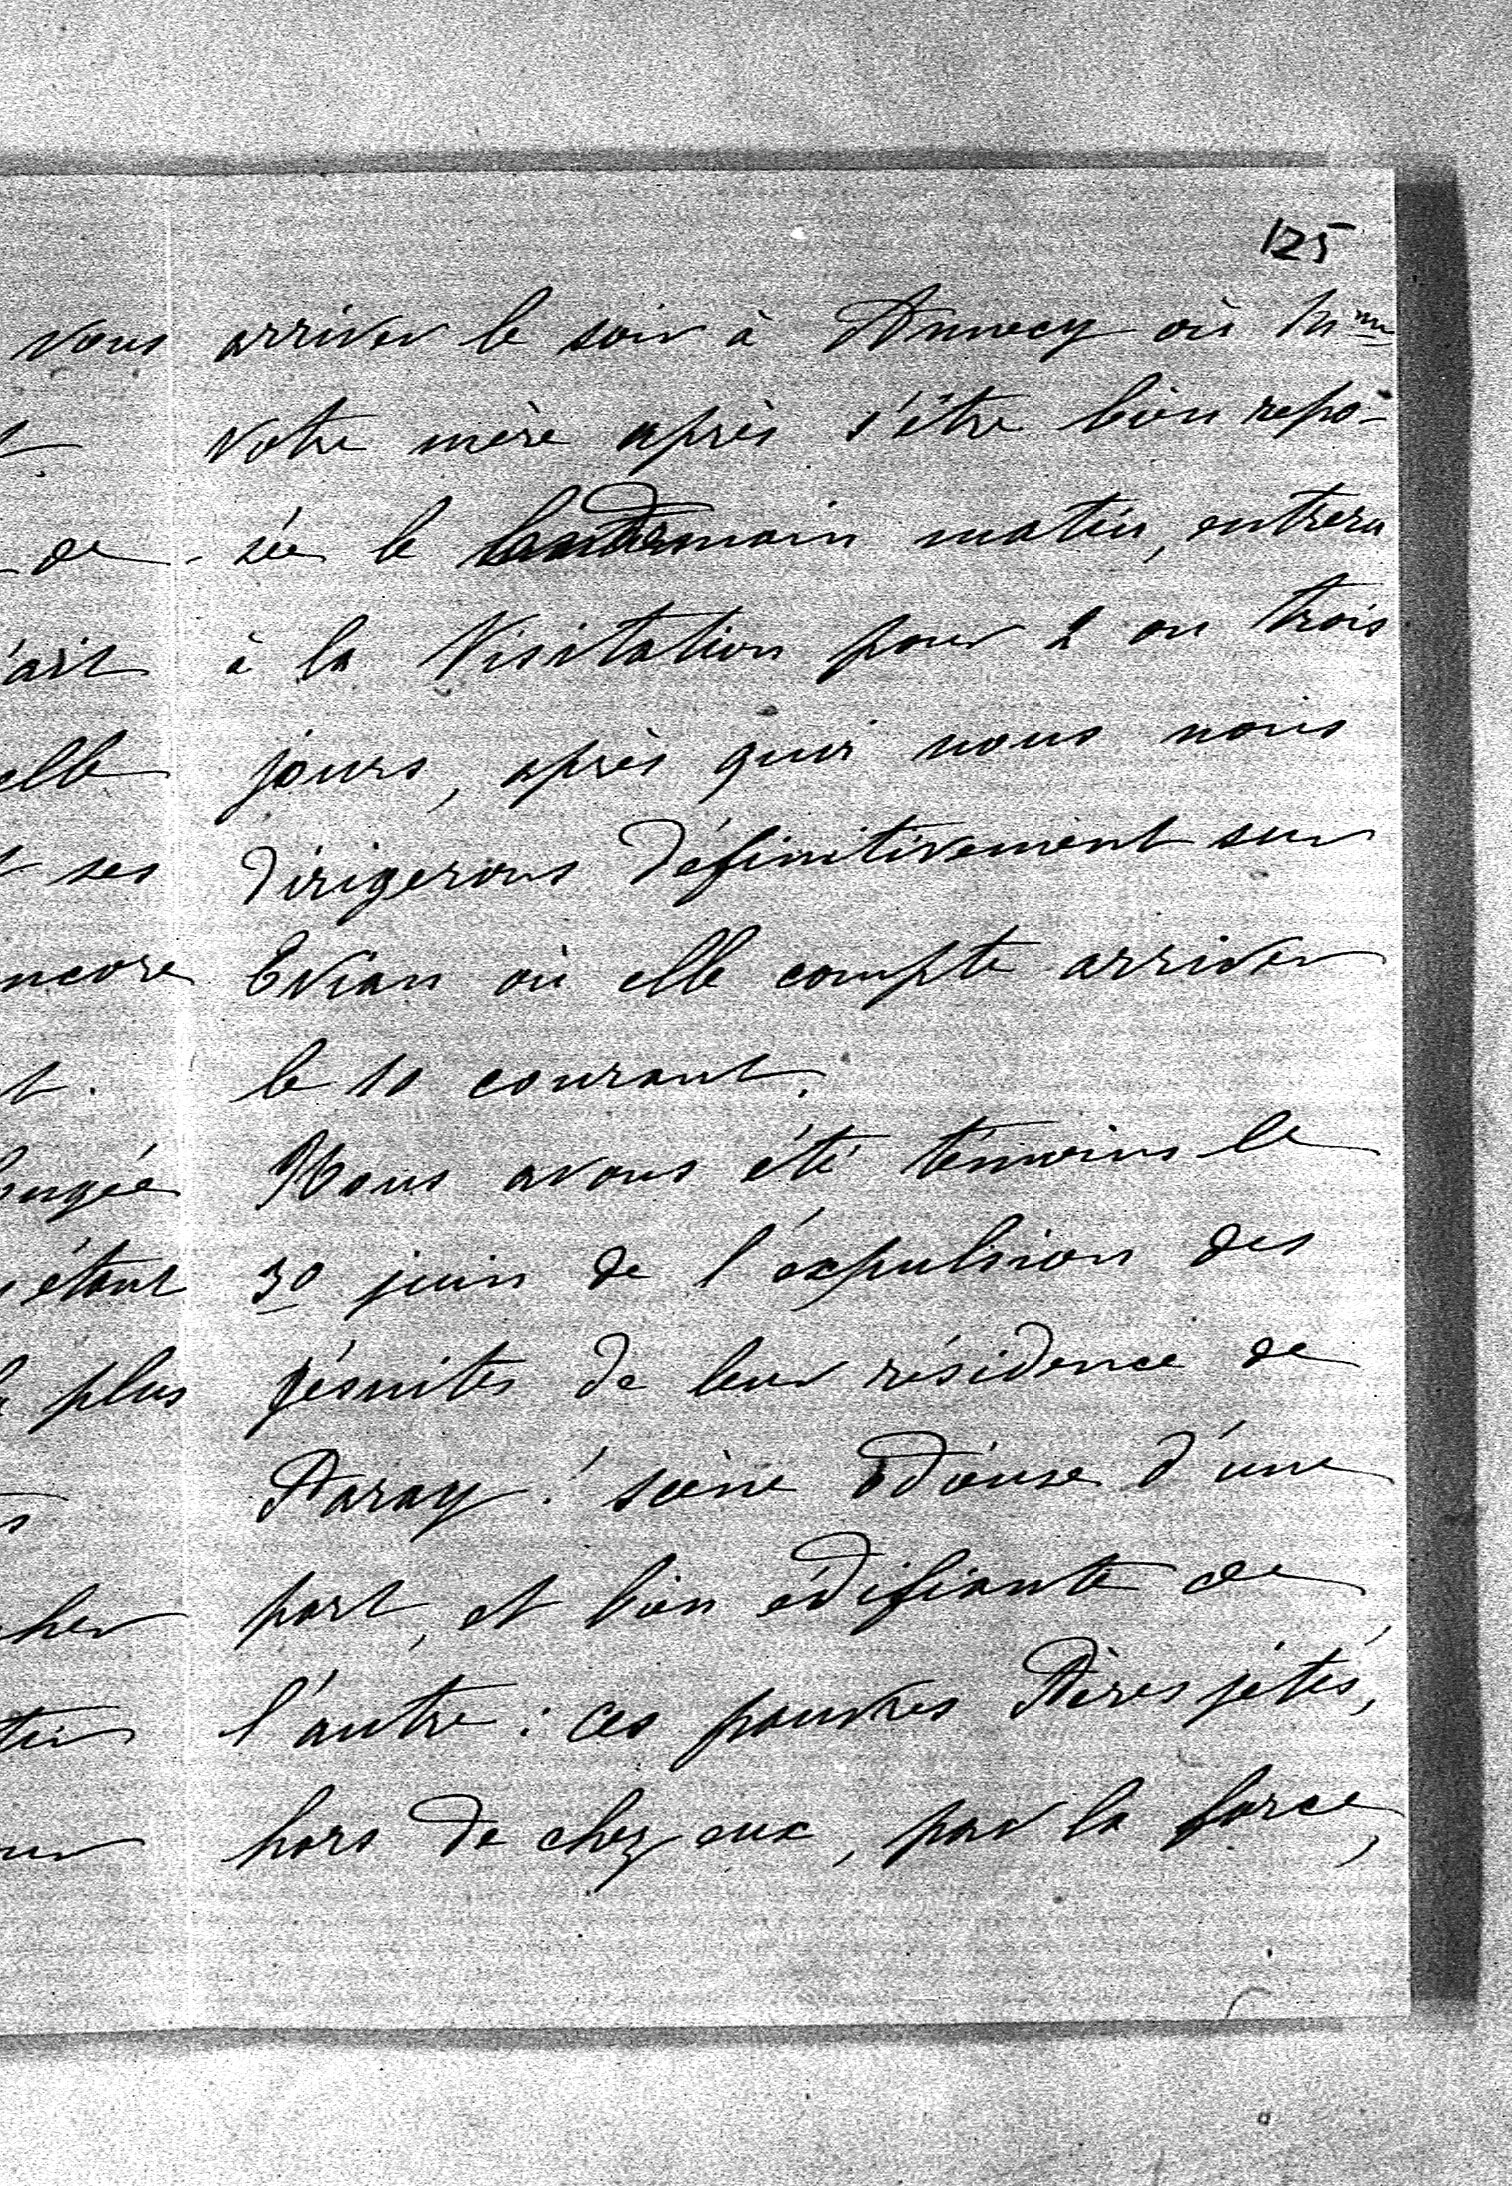 125
arriver le soir à Annecy où Mme
votre mère après s'être bien repo-
sée le lendemain matin, entrera
à la Visitation pour 2 ou trois
jours, après quoi nous nous
dirigerons définitivement sur
Evian où elle compte arriver
le 10 courant.
Nous avons été témoins le
30 juin de l'expulsion des
jésuites de leur résidence de
Paray! scène odieuse d'une
part, et bien édifiante de
l'autre: ces pauvres Pères jétés,
hors de chez eux, par la force,
vous
de
ait
elle
ses
ncore
t.
étant
plus
cher